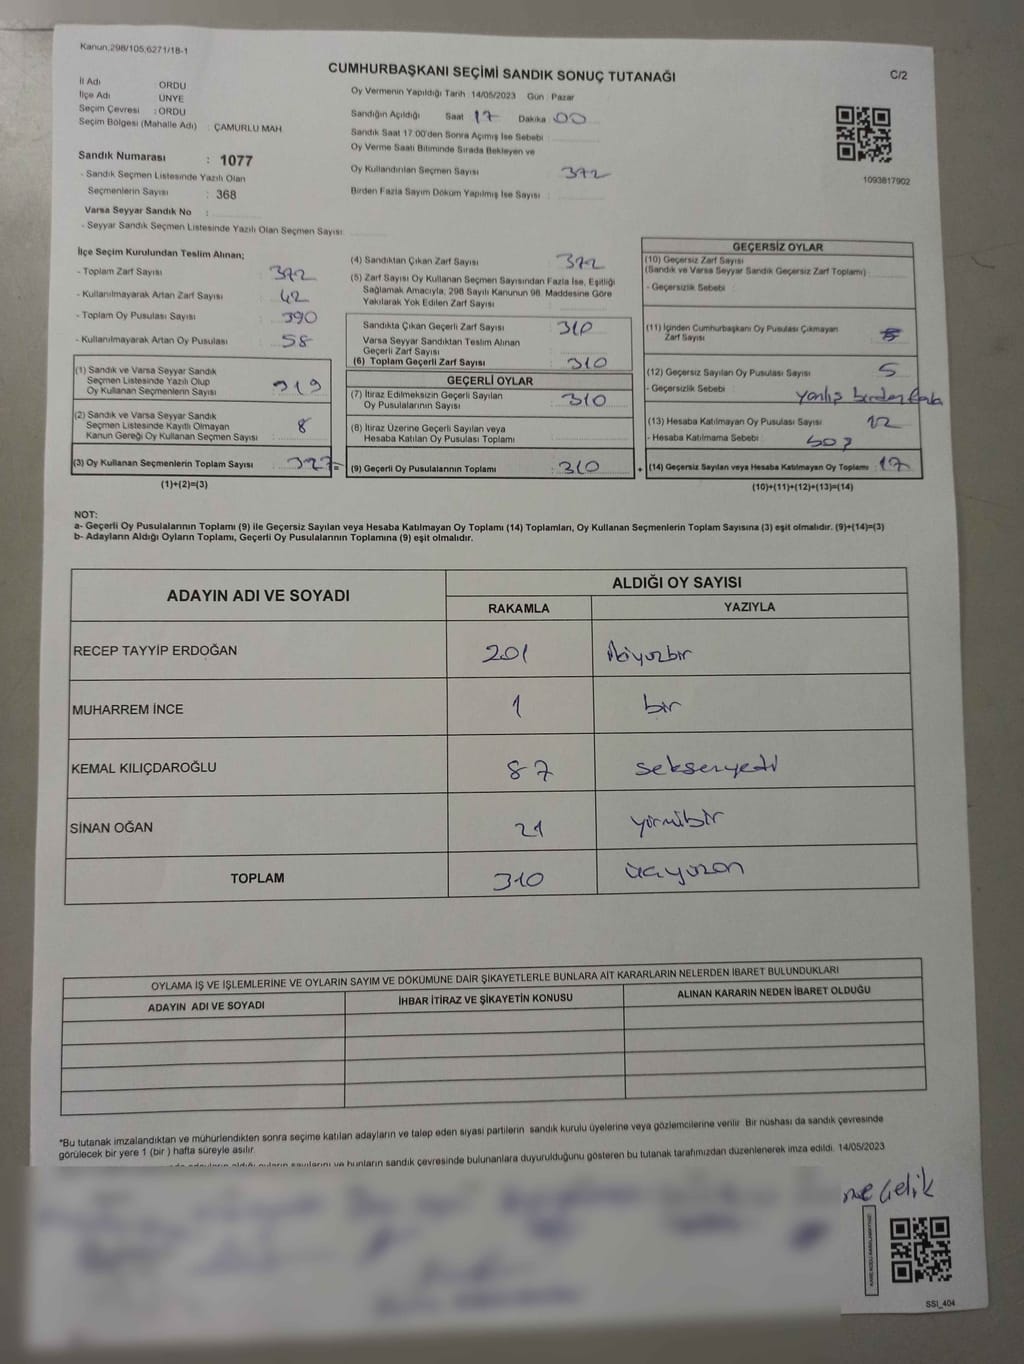 Kanun,298/105,6271/18-1
CUMHURBAŞKANI SEÇİMİ SANDIK SONUÇ TUTANAĞI
C/2
İl Adı ORDU
İlçe Adı ÜNYE
Seçim Çevresi : ORDU
Seçim Bölgesi (Mahalle Adı) : ÇAMURLU MAH
Oy Vermenin Yapıldığı Tarih 14/05/2023 Gün Pazar
Sandığın Açıldığı Saat 17 Dakika 00
Sandık Saat 17:00'den Sonra Açımış İse Sebebi
Oy Verme Saati Bitiminde Sırada Bekleyen ve
Oy Kullandırılan Seçmen Sayısı 372
Birden Fazla Sayım Döküm Yapılmış İse Sayısı :
1093817902
Sandık Numarası : 1077
- Sandık Seçmen Listesinde Yazılı Olan
Seçmenlerin Sayısı : 368
Varsa Seyyar Sandık No :
- Seyyar Sandık Seçmen Listesinde Yazılı Olan Seçmen Sayısı:
İlçe Seçim Kurulundan Teslim Alınan;
- Toplam Zarf Sayısı 372
- Kullanılmayarak Artan Zarf Sayısı 42
- Toplam Oy Pusulası Sayısı 390
- Kullanılmayarak Artan Oy Pusulası 58
(1) Sandık ve Varsa Seyyar Sandık
Seçmen Listesinde Yazılı Olup
Oy Kullanan Seçmenlerin Sayısı 319
(2) Sandık ve Varsa Seyyar Sandık
Seçmen Listesinde Kayıtlı Olmayan
Kanun Gereği Oy Kullanan Seçmen Sayısı : 8
(3) Oy Kullanan Seçmenlerin Toplam Sayısı 327 =
(1)+(2)=(3)
(4) Sandıktan Çıkan Zarf Sayısı 372
(5) Zarf Sayısı Oy Kullanan Seçmen Sayısından Fazla İse, Eşitliği
Sağlamak Amacıyla; 298 Sayılı Kanunun 98. Maddesine Göre
Yakılarak Yok Edilen Zarf Sayısı
Sandıkta Çıkan Geçerli Zarf Sayısı : 310
Varsa Seyyar Sandıktan Teslim Alınan
Geçerli Zarf Sayısı
(6) Toplam Geçerli Zarf Sayısı 310
GEÇERLİ OYLAR
(7) İtiraz Edilmeksizin Geçerli Sayılan
Oy Pusulalarının Sayısı : 310
(8) İtiraz Üzerine Geçerli Sayılan veya
Hesaba Katılan Oy Pusulası Toplamı :
(9) Geçerli Oy Pusulalarının Toplamı : 310 +
GEÇERSİZ OYLAR
(10) Geçersiz Zarf Sayısı
(Sandık ve Varsa Seyyar Sandık Geçersiz Zarf Toplamı) :
- Geçersizlik Sebebi :
(11) İçinden Cumhurbaşkanı Oy Pusulası Çıkmayan
Zarf Sayısı :
(12) Geçersiz Sayılan Oy Pusulası Sayısı 5
- Geçersizlik Sebebi : yanlış birden fazla
(13) Hesaba Katılmayan Oy Pusulası Sayısı 12
- Hesaba Katılmama Sebebi :
(14) Geçersiz Sayılan veya Hesaba Katılmayan Oy Toplamı : 17
(10)+(11)+(12)+(13)=(14)
NOT:
a- Geçerli Oy Pusulalarının Toplamı (9) ile Geçersiz Sayılan veya Hesaba Katılmayan Oy Toplamı (14) Toplamları, Oy Kullanan Seçmenlerin Toplam Sayısına (3) eşit olmalıdır. (9)+(14)=(3)
b- Adayların Aldığı Oyların Toplamı, Geçerli Oy Pusulalarının Toplamına (9) eşit olmalıdır.
ADAYIN ADI VE SOYADI
ALDIĞI OY SAYISI
RAKAMLA YAZIYLA
RECEP TAYYİP ERDOĞAN 201 ikiyüzbir
MUHARREM İNCE 1 bir
KEMAL KILIÇDAROĞLU 87 seksenyedi
SİNAN OĞAN 21 yirmibir
TOPLAM 310 üçyüzon
OYLAMA İŞ VE İŞLEMLERİNE VE OYLARIN SAYIM VE DÖKÜMÜNE DAİR ŞİKAYETLERLE BUNLARA AİT KARARLARIN NELERDEN İBARET BULUNDUKLARI
ADAYIN ADI VE SOYADI İHBAR İTİRAZ VE ŞİKAYETİN KONUSU ALINAN KARARIN NEDEN İBARET OLDUĞU
*Bu tutanak imzalandıktan ve mühürlendikten sonra seçime katılan adayların ve talep eden siyasi partilerin sandık kurulu üyelerine veya gözlemcilerine verilir. Bir nüshası da sandık çevresinde
görülecek bir yere 1 (bir ) hafta süreyle asılır.
sayılarını ve bunların sandık çevresinde bulunanlara duyurulduğunu gösteren bu tutanak tarafımızdan düzenlenerek imza edildi. 14/05/2023
Çelik
SSI_404